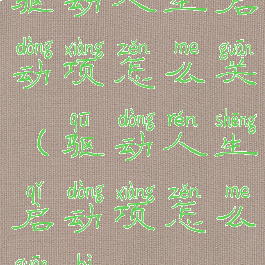 驱 动 人 生 启
dòng xiàng zěn me guān
动 项 怎 么 关
qū dòng rén shēng
( 驱 动 人 生
qǐ dòng xiàng zěn me
启 动 项 怎 么
guān bì